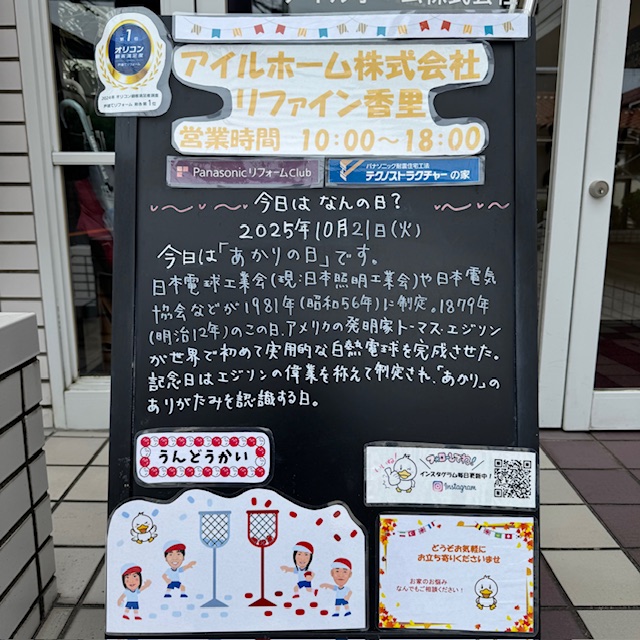 第1位
オリコン
顧客満足度
戸建てリフォーム
アイルホーム株式会社
リファイン香里
営業時間 10:00～18:00
Panasonic リフォーム Club
パナソニック耐震住宅工法
テクノストラクチャーの家
今日は なんの日？
2025年10月21日(火)
今日は「あかりの日」です。
日本電球工業会(現:日本照明工業会)や日本電気
協会などが1981年(昭和56年)に制定。1879年
(明治12年)のこの日、アメリカの発明家トーマス・エジソン
が世界で初めて実用的な白熱電球を完成させた。
記念日はエジソンの偉業を称えて制定され、「あかり」の
ありがたみを認識する日。
うんどうかい
いいね
フォローしてね!
インスタグラム毎日更新中！
Instagram
どうぞお気軽に
お立ち寄りくださいませ
お家のお悩み
なんでもご相談ください！